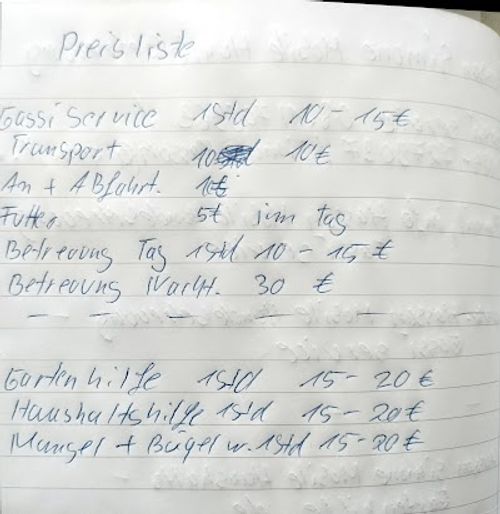 Preisliste
Gassi Service 1Std 10 - 15€
Transport 10€
An + Abfahrt. 1€
Futter 5€ im tag
Betreuung Tag 1Std 10 - 15€
Betreuung Nacht. 30 €
Gartenhilfe 1Std 15 - 20€
Haushaltshilfe 1Std 15 - 20€
Mangel + Bügel w. 1Std 15-20€